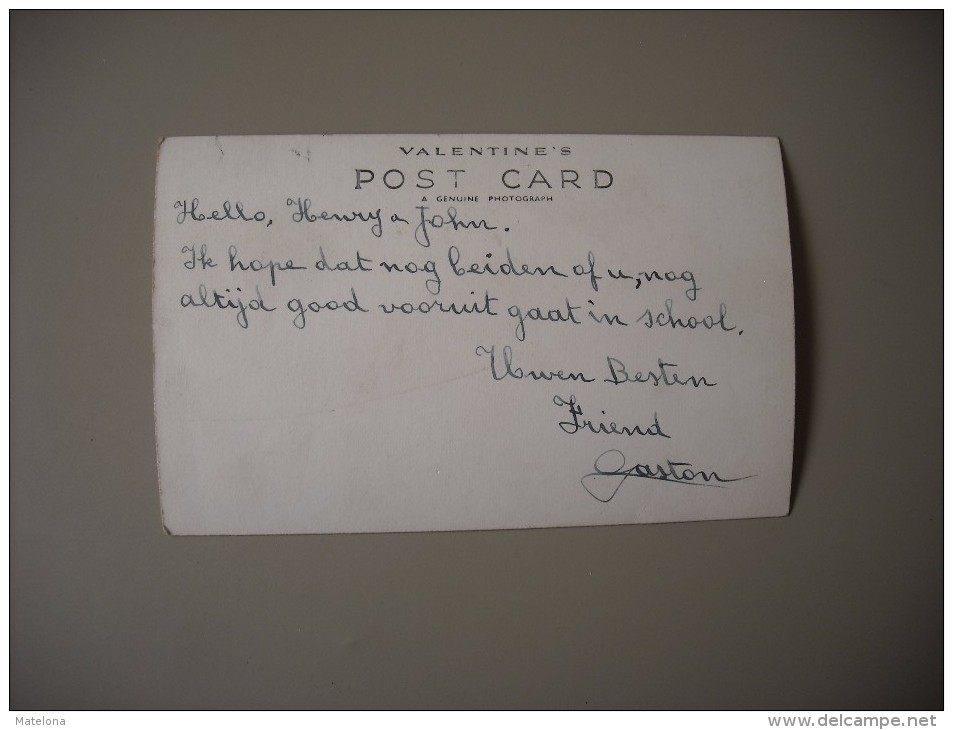 VALENTINE'S
POST CARD
A GENUINE PHOTOGRAPH
Hello, Henry a John.
Ik hope dat nog beiden of u, nog
altijd good vooruit gaat in school.
Uwen Besten
Friend
Gaston
Matelona
www.delcampe.net